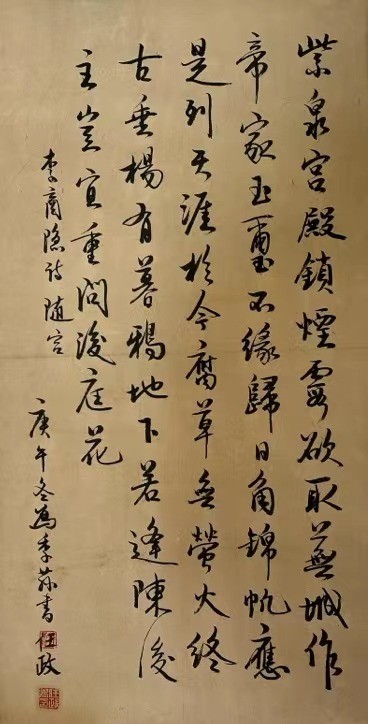 紫泉宮殿鎖煙霞欲取蕪城作
帝家玉璽不緣歸日角錦帆應
是到天涯於今腐草無螢火終
古垂楊有暮鴉地下若逢陳後
主豈宜重問後庭花
李商隱詩隨宮
庚午冬為季荪書任政